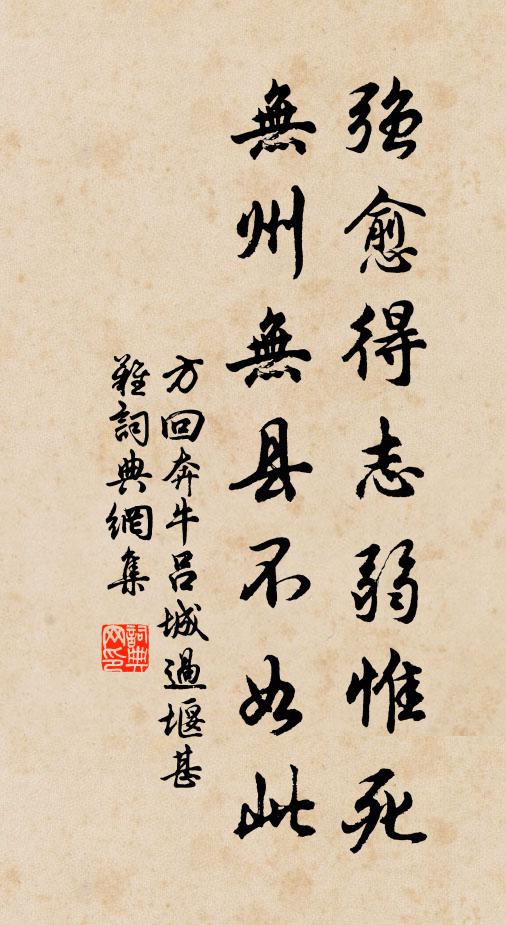 强愈得志弱惟死
無州無县不如此
方回奔牛吕城過堰甚
難詞典網集
詞典
网印